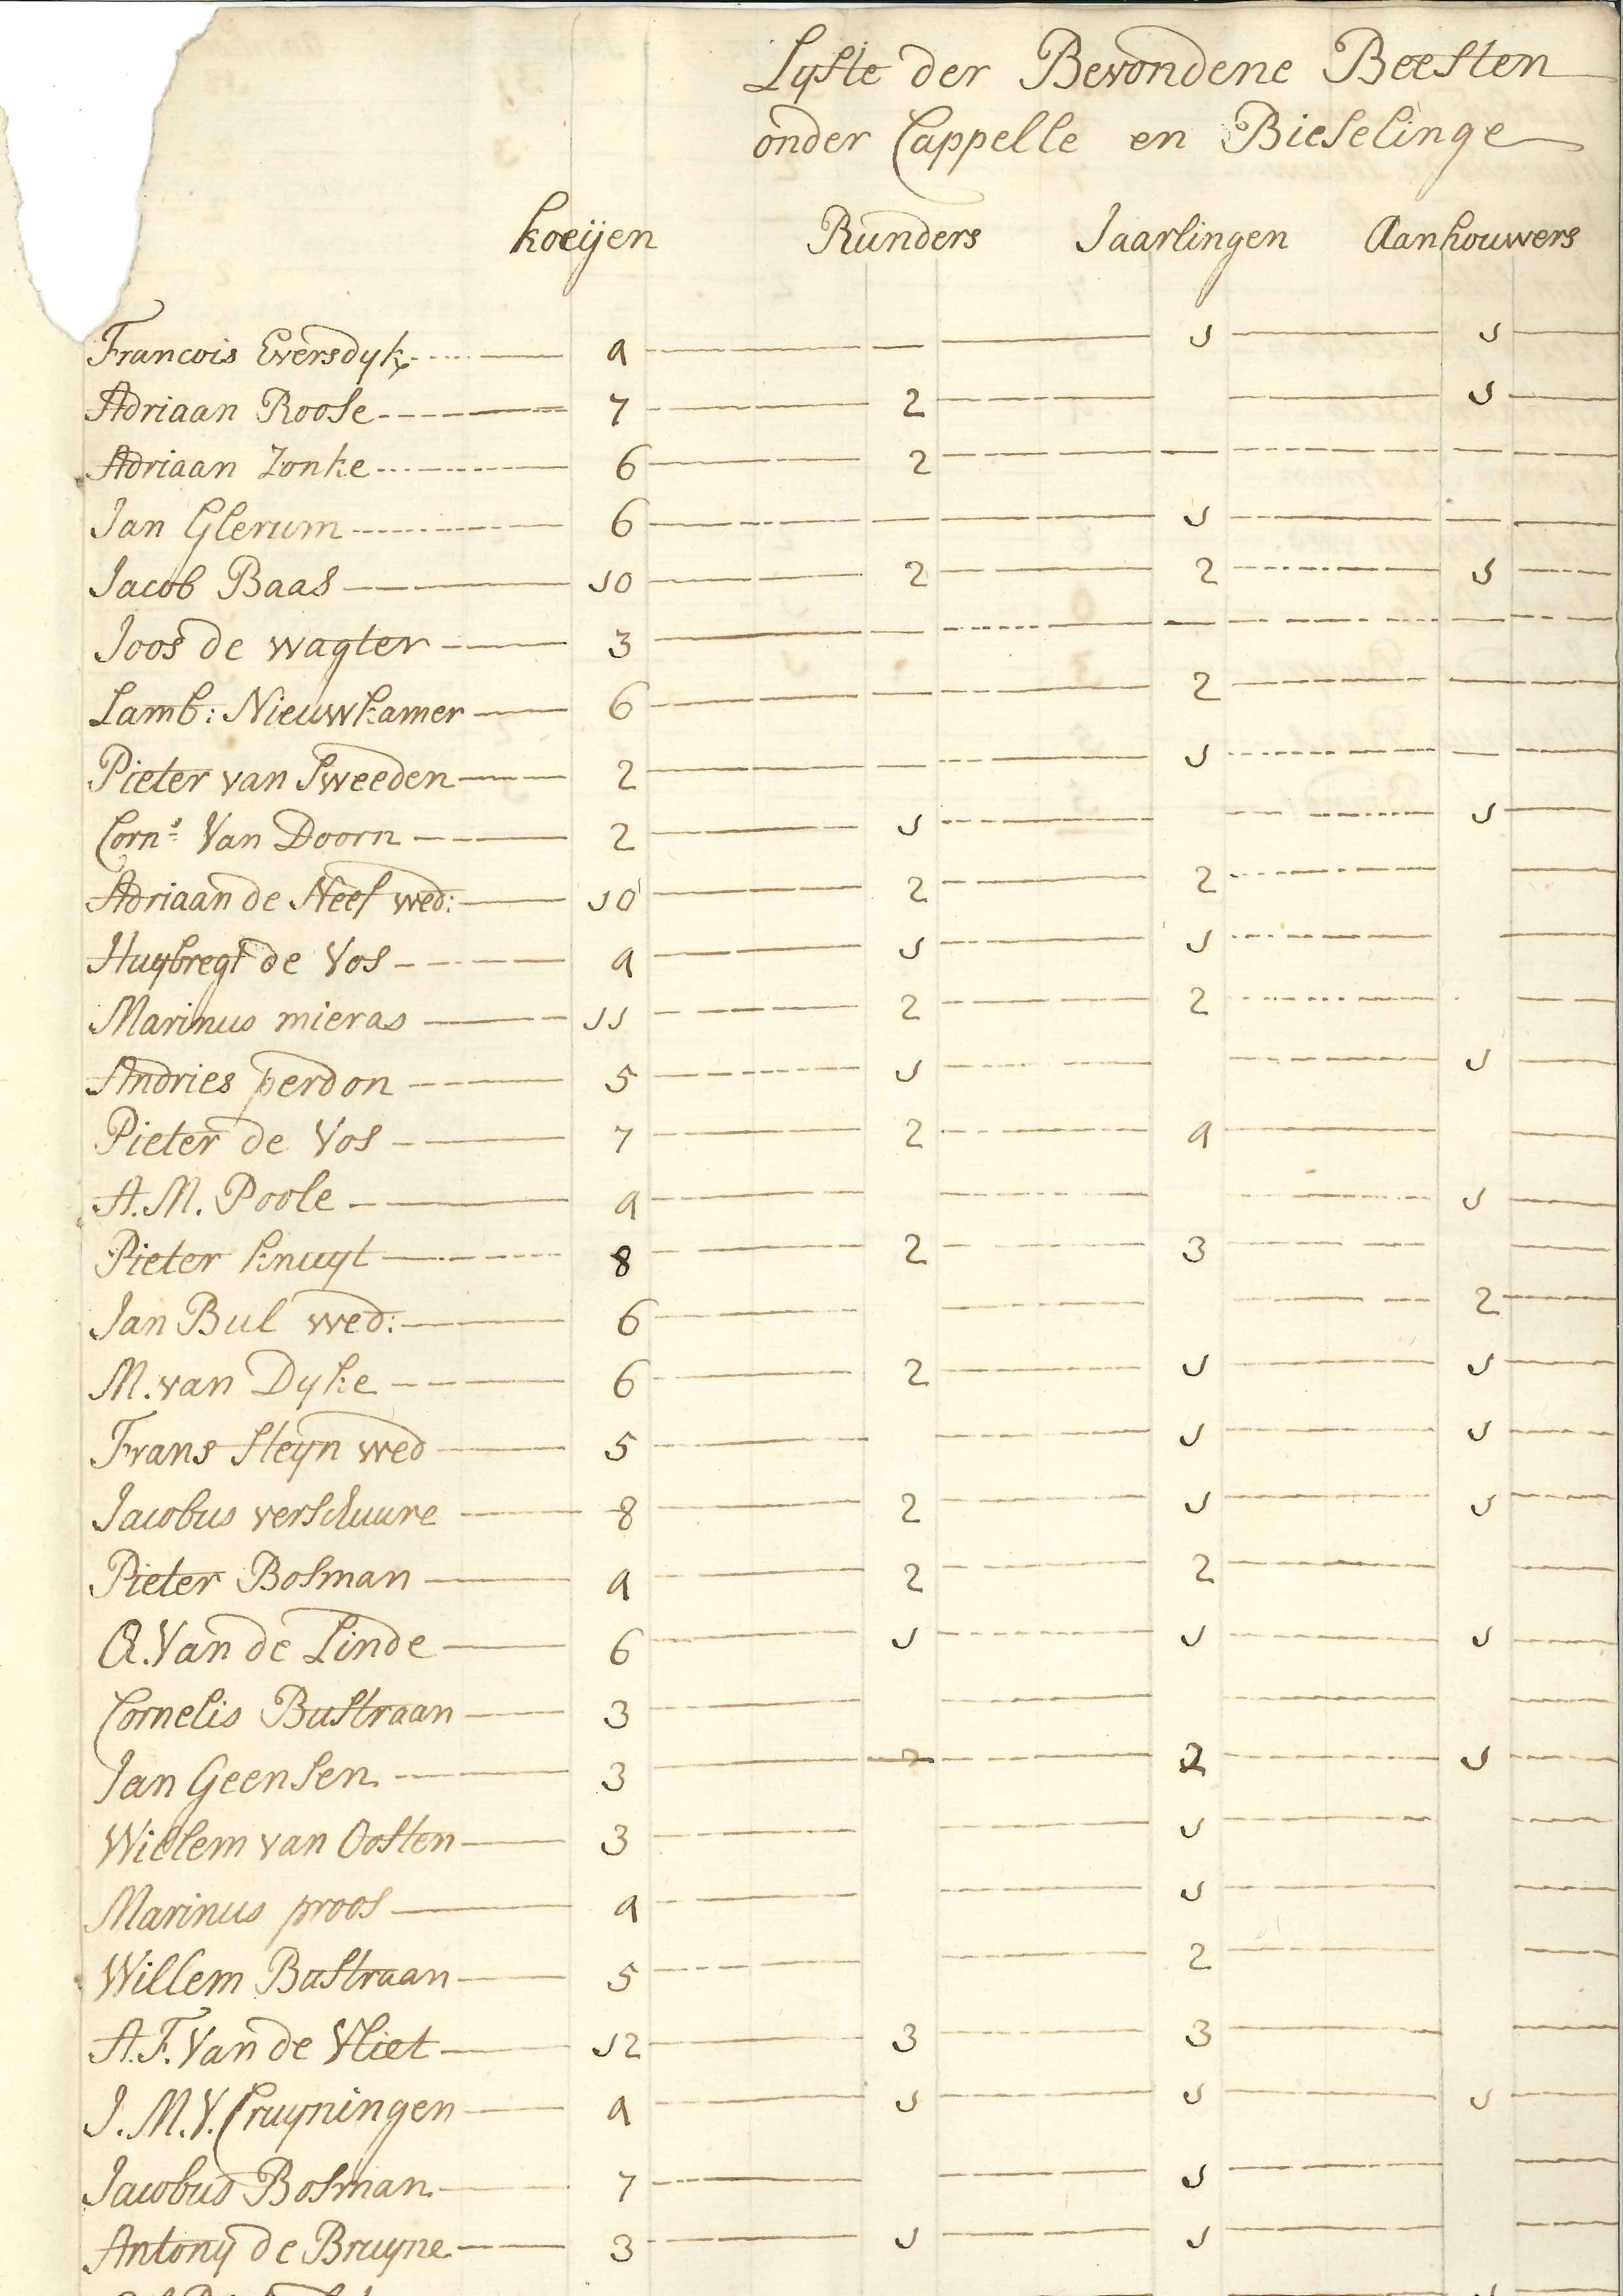 Lyste der Bevondene Beesten
onder Cappelle en Bieselinge
koeijen Runders Jaarlingen Aanhouwers
Francois Eversdyk 4 — 1 1
Adriaan Roose 7 2 1
Adriaan Zonke 6 2 — —
Jan Glerum 6 — 1 —
Jacob Baas 10 2 2 1
Joos de wagter 3 — — —
Lamb: Nieuwkamer 6 — 2 —
Pieter van Sweeden 2 — 1 —
Corns Van Doorn 2 1 1
Adriaan de Neef wed: 10 2 2
Huybregt de Vos 4 1 1
Marinus mieras 11 2 2
Andries perdon 5 1 1
Pieter de Vos 7 2 4
A. M. Poole 4 1
Pieter knuyt 8 2 3
Jan Bul wed: 6 2
M. van Dyke 6 2 1 1
Frans Steyn wed 5 1 1
Jacobus verschuure 8 2 1 1
Pieter Bosman 4 2 2
A. Van de Linde 6 1 1 1
Cornelis Bustraan 3
Jan Geensen 3 — 2 1
Willem van Oosten 3 1
Marinus proos 4 1
Willem Bustraan 5 2
A. F. Van de Vliet 12 3 3
J. M. V. Cruyningen 4 1 1 1
Jacobus Bosman 7 1
Antony de Bruyne 3 1 1